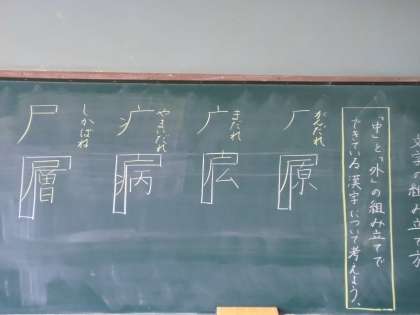 文字の組み立て方
「中」と「外」の組み立てで
できている漢字について考えよう。
厂 がんだれ
原
广 まだれ
広
疒 やまいだれ
病
尸 しかばね
層